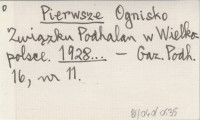 Pierwsze Ognisko
Związku Podhalan w Wielko-
polsce. 1928... – Gaz. Podh.
16, nr 11.